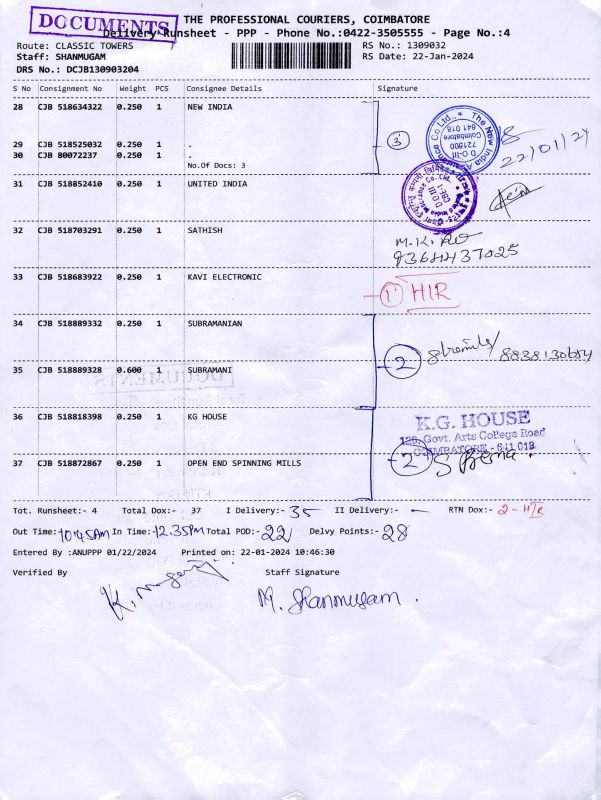 DOCUMENTS
THE PROFESSIONAL COURIERS, COIMBATORE
Delivery Runsheet - PPP - Phone No.:0422-3505555 - Page No.:4
Route: CLASSIC TOWERS
RS No.: 1309032
Staff: SHANMUGAM
RS Date: 22-Jan-2024
DRS No.: DCJB130903204
S No Consignment No Weight PCS Consignee Details Signature
28 CJB 518634322 0.250 1 NEW INDIA
29 CJB 518525032 0.250 1 .
30 CJB 80072237 0.250 1 .
No.Of Docs: 3
3
The New India Assurance Co Ltd.,
D.O-III
721600
Coimbatore
641 018
22/01/24
31 CJB 518852410 0.250 1 UNITED INDIA
32 CJB 518703291 0.250 1 SATHISH
M.K.
33 CJB 518683922 0.250 1 KAVI ELECTRONIC
1 HIR
34 CJB 518889332 0.250 1 SUBRAMANIAN
2
8838130654
35 CJB 518889328 0.600 1 SUBRAMANI
36 CJB 518818398 0.250 1 KG HOUSE
K.G. HOUSE
126, Govt. Arts College Road
COIMBATORE - 641 018
2
37 CJB 518872867 0.250 1 OPEN END SPINNING MILLS
Tot. Runsheet:- 4 Total Dox:- 37 I Delivery:- 35 II Delivery:- - RTN Dox:- 2 - HIR
Out Time: 10.45AM In Time:- 12.35PM Total POD:- 22 Delvy Points:- 28
Entered By :ANUPPP 01/22/2024 Printed on: 22-01-2024 10:46:30
Verified By Staff Signature
M. Shanmugam.